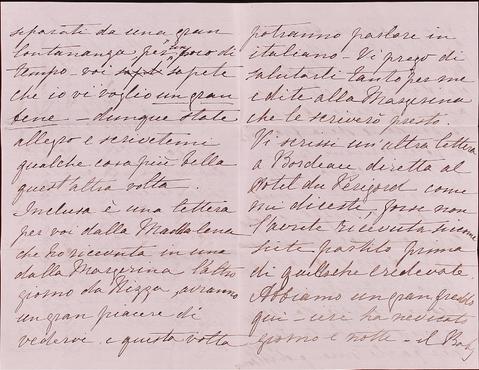 separati da una gran
lontananza per un poco di
tempo - voi sapete sapete
che io vi voglio un gran
bene - dunque state
allegro e scrivetemi
qualche cosa più bella
quest'altra volta.
Inclusa è una lettera
per voi dalla Maddalena
che ho ricevuta in una
dalla Margerina l'altro
giorno da Nizza, avranno
un gran piacere di
vedervi e questa volta
potranno parlare in
italiano - Vi prego di
salutarli tanto per me
e dite alla Margerina
che le scriverò presto.
Vi scrissi un'altra lettera
a Bordeau diretta al
Hotel du Périgord come
mi diceste, forse non
l'avete ricevuta siccome
siete partito prima
di quel che credevate.
Abbiamo un gran freddo
qui - ieri ha nevicato
giorno e notte - il